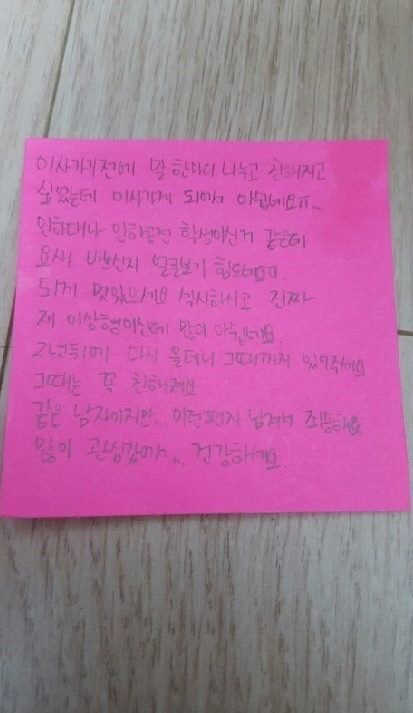 이사가기전에 말 한마디 나누고 친해지고
싶었는데 이사가게 되어서 아쉽네요ㅠ..
인하대나 인하공전 학생이신거 같은데
요새 바쁘신지 얼굴보기 힘드네요ㅠ.
되게 멋있으세요 섹시하시고 진짜
제 이상형이신데 많이 아쉽네요.
2년뒤에 다시 올테니 그때까지 있어주세요
그때는 꼭 친해져요
같은 남자이지만.. 이런편지 남겨서 죄송해요
많이 관심갔어요.. 건강하세요